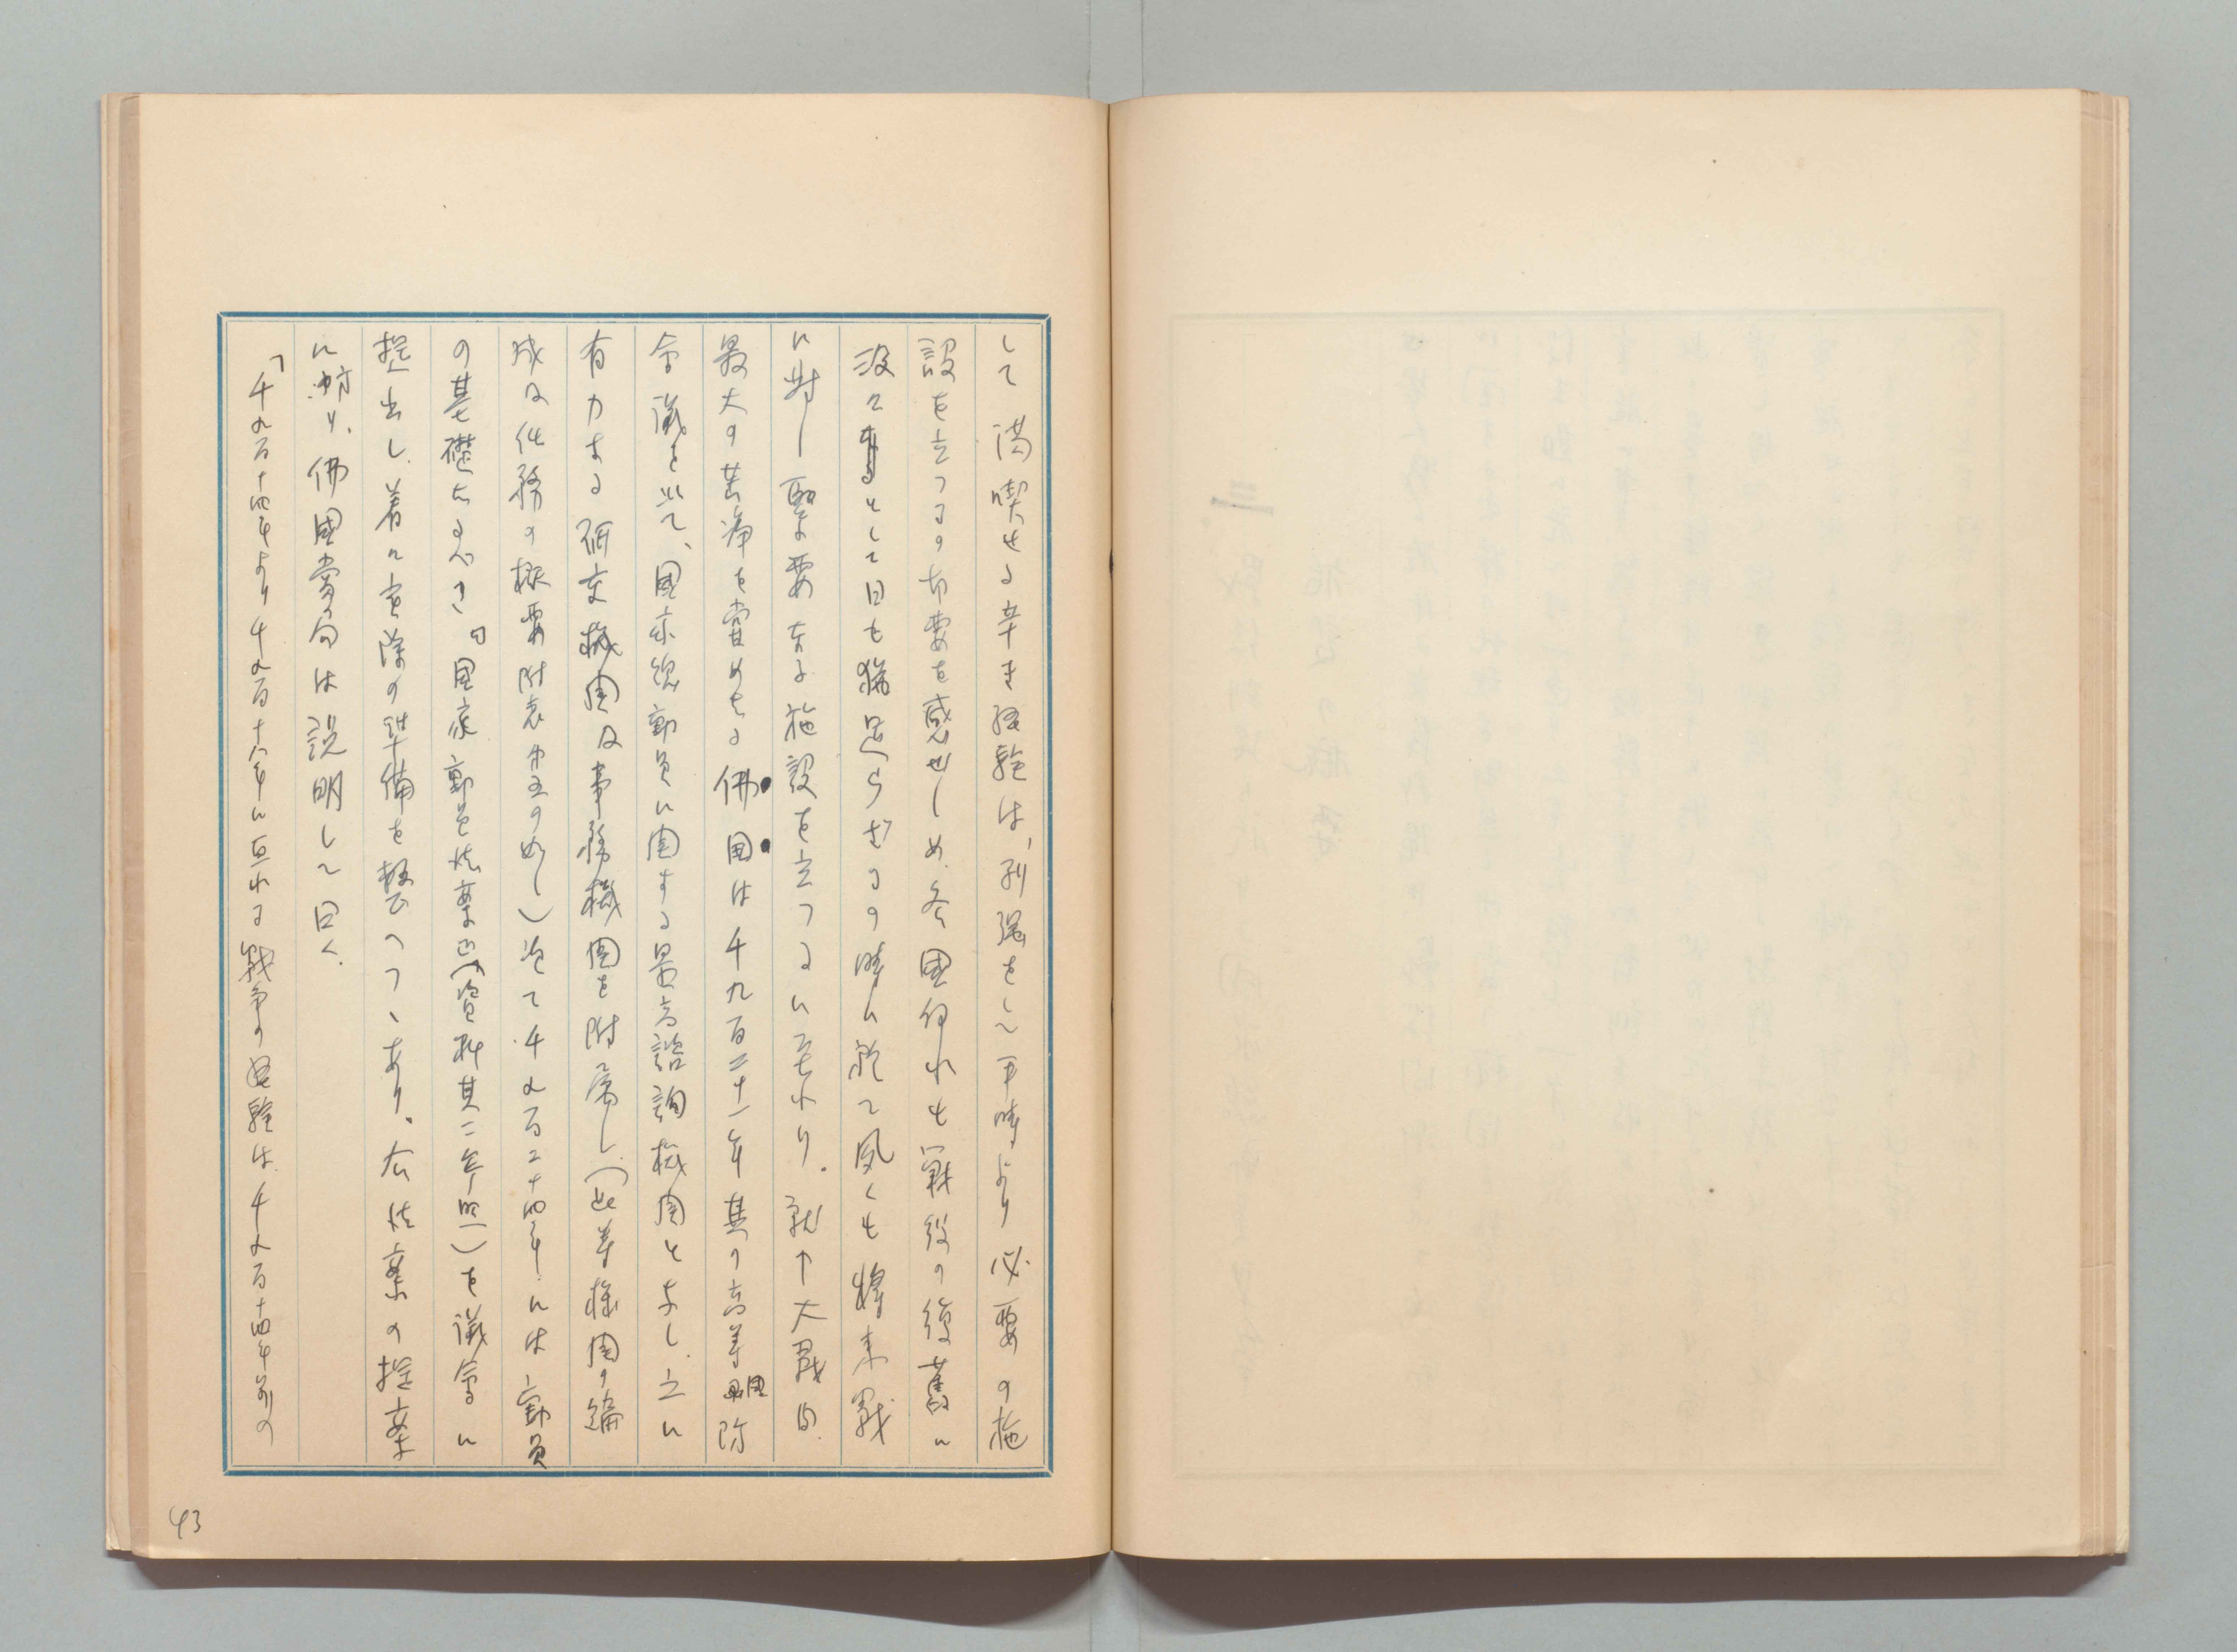 して満喫せる辛き経験は、列強をして平時より必要の施
設を立つるの切要を感ぜしめ、各国何れも戦役の復舊に
汲々として日も猶足らざるの時に於て夙くも将来戦
に対し緊要なる施設を立つるに至れり。就中大戦間
最大の苦痛を嘗めたる佛国は千九百二十一年其の高等国防
会議を以て、国家総動員に関する最高諮詢機関となし、之に
有力なる研究機関及事務機関を附属し、(此等機関の編
成及任務の概要附表第五の如し)次で千九百二十四年には動員
の基礎たるべき「国家動員法案」(資料其二参照)を議会に
提出し、着々実際の準備を整へつゝあり。右法案の提案
に方り、佛國當局は説明して曰く、
「千九百十四年より千九百十八年に亘れる戦争の経験は、千九百十四年前の
43